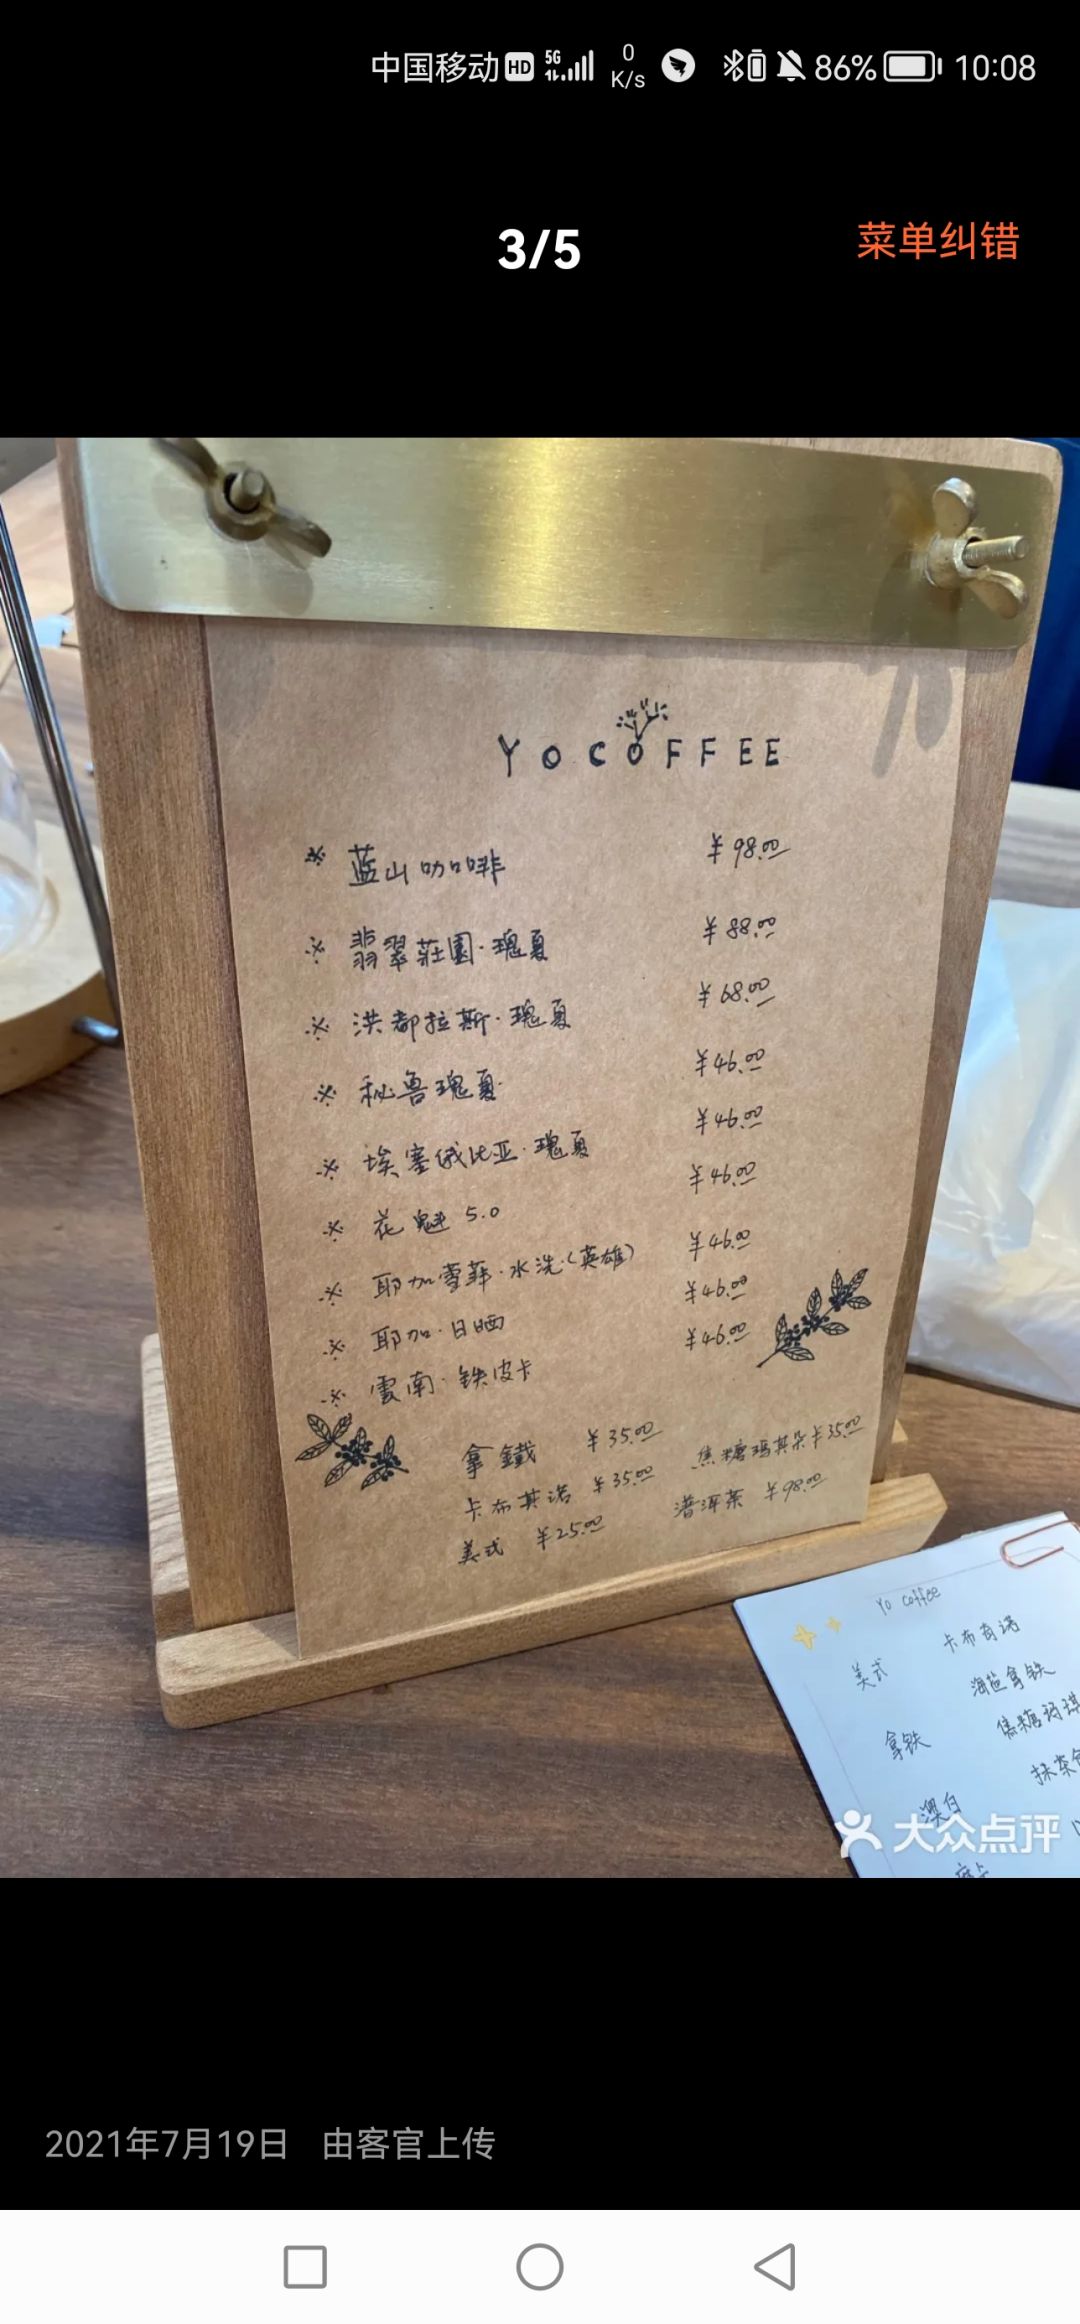 中国移动 HD 5G 0 K/s 86% 10:08
3/5
菜单纠错
YO COFFEE
※ 蓝山咖啡 ¥98.00
※ 翡翠莊園·瑰夏 ¥88.00
※ 洪都拉斯·瑰夏 ¥68.00
※ 秘鲁瑰夏 ¥46.00
※ 埃塞俄比亚·瑰夏 ¥46.00
※ 花魁 5.0 ¥46.00
※ 耶加雪菲·水洗(英雄) ¥46.00
※ 耶加·日晒 ¥46.00
※ 雲南·铁皮卡 ¥46.00
拿鐵 ¥35.00 焦糖玛其朵 ¥35.00
卡布其诺 ¥35.00 普洱茶 ¥98.00
美式 ¥25.00
Yo coffee
美式 卡布奇诺
海盐拿铁
拿铁 焦糖玛琪
抹茶
澳白
大众点评
2021年7月19日 由客官上传